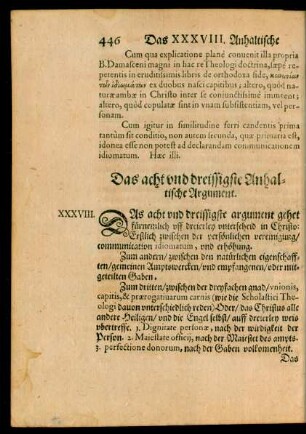 446 Das XXXVIII. Anhaltische
Cum qua explicatione planè conuenit illa propria
B. Damasceni magni in hac re Theologi doctrina, sæpè re-
petentis in eruditissimis libris de orthodoxa fide,
τῶν ἰδιωμάτων ex duobus nasci capitibus; altero, quòd na-
turæ ambæ in Christo inter se coniunctissimè
altero, quòd copulatæ sint in vnam subsistentiam, vel per-
sonam.
Cum igitur in similitudine ferri candentis prima
tantùm sit conditio, non autem secunda, quæ primaria est,
idonea esse non potest ad declarandam communicationem
idiomatum. Hæc illi.
Das acht vnd dreissigste Anhal-
tische Argument.
XXXVIII. DAs acht vnd dreissigste argument gehet
fürnemlich vff dreierley vnterscheid in Christo:
Erstlich zwischen der persönlichen vereinigung/
communication idiomatum, vnd erhöhung.
Zum andern/zwischen den natürlichen eigenschaff-
ten/gemeinen Amptswercken/vnd empfangenen/oder mit-
geteilten Gaben.
Zum dritten/zwischen der dreyfachen gnad/vnionis,
capitis, & prærogatiuarum carnis (wie die Scholastici Theo-
logi dauon vnterschiedlich reden) Oder/das Christus alle
andere Heiligen/vnd die Engel selbst/auff dreierley weis
vbertresse. 1. Dignitate personæ, nach der würdigkeit der
Person. 2. Maiestate officij, nach der Maiestet des ampts.
3. perfectione donorum, nach der Gaben volkomenheit.
Das